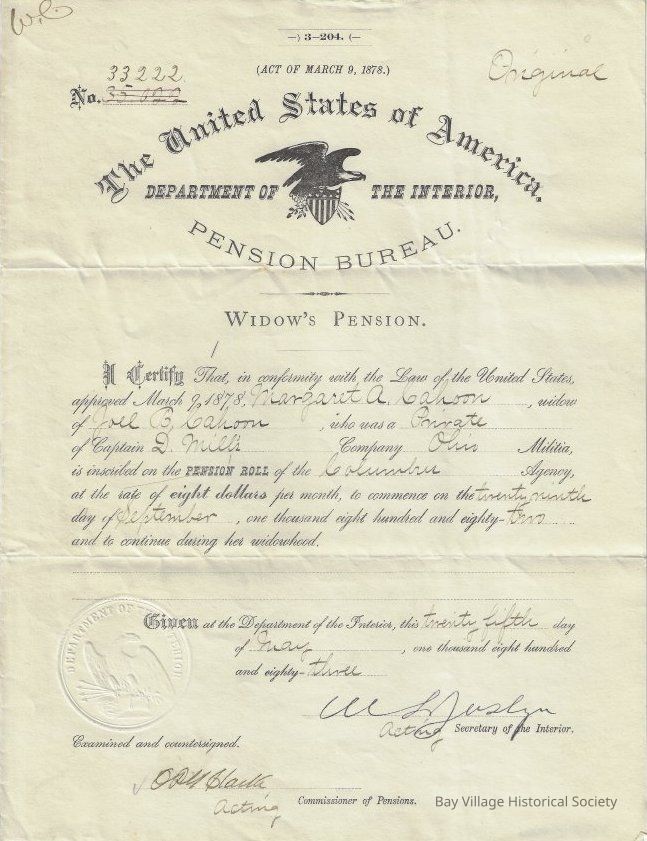 W.C.
3—204.
(ACT OF MARCH 9, 1878.)
Original
33222.
No. 35.022
The United States of America,
DEPARTMENT OF THE INTERIOR,
PENSION BUREAU.
WIDOW'S PENSION.
I Certify That, in conformity with the Law of the United States,
approved March 9, 1878, Margaret A. Cahoon, widow
of Joel B. Cahoon, who was a Private
of Captain D. Mills Company Ohio Militia,
is inscribed on the PENSION ROLL of the Columbus Agency,
at the rate of eight dollars per month, to commence on the twenty ninth
day of September, one thousand eight hundred and eighty-two
and to continue during her widowhood.
Given at the Department of the Interior, this twenty fifth day
of May, one thousand eight hundred
and eighty-three
DEPARTMENT OF THE INTERIOR
M L Joslyn
Acting Secretary of the Interior.
Examined and countersigned.
Clark
Acting Commissioner of Pensions.
Bay Village Historical Society